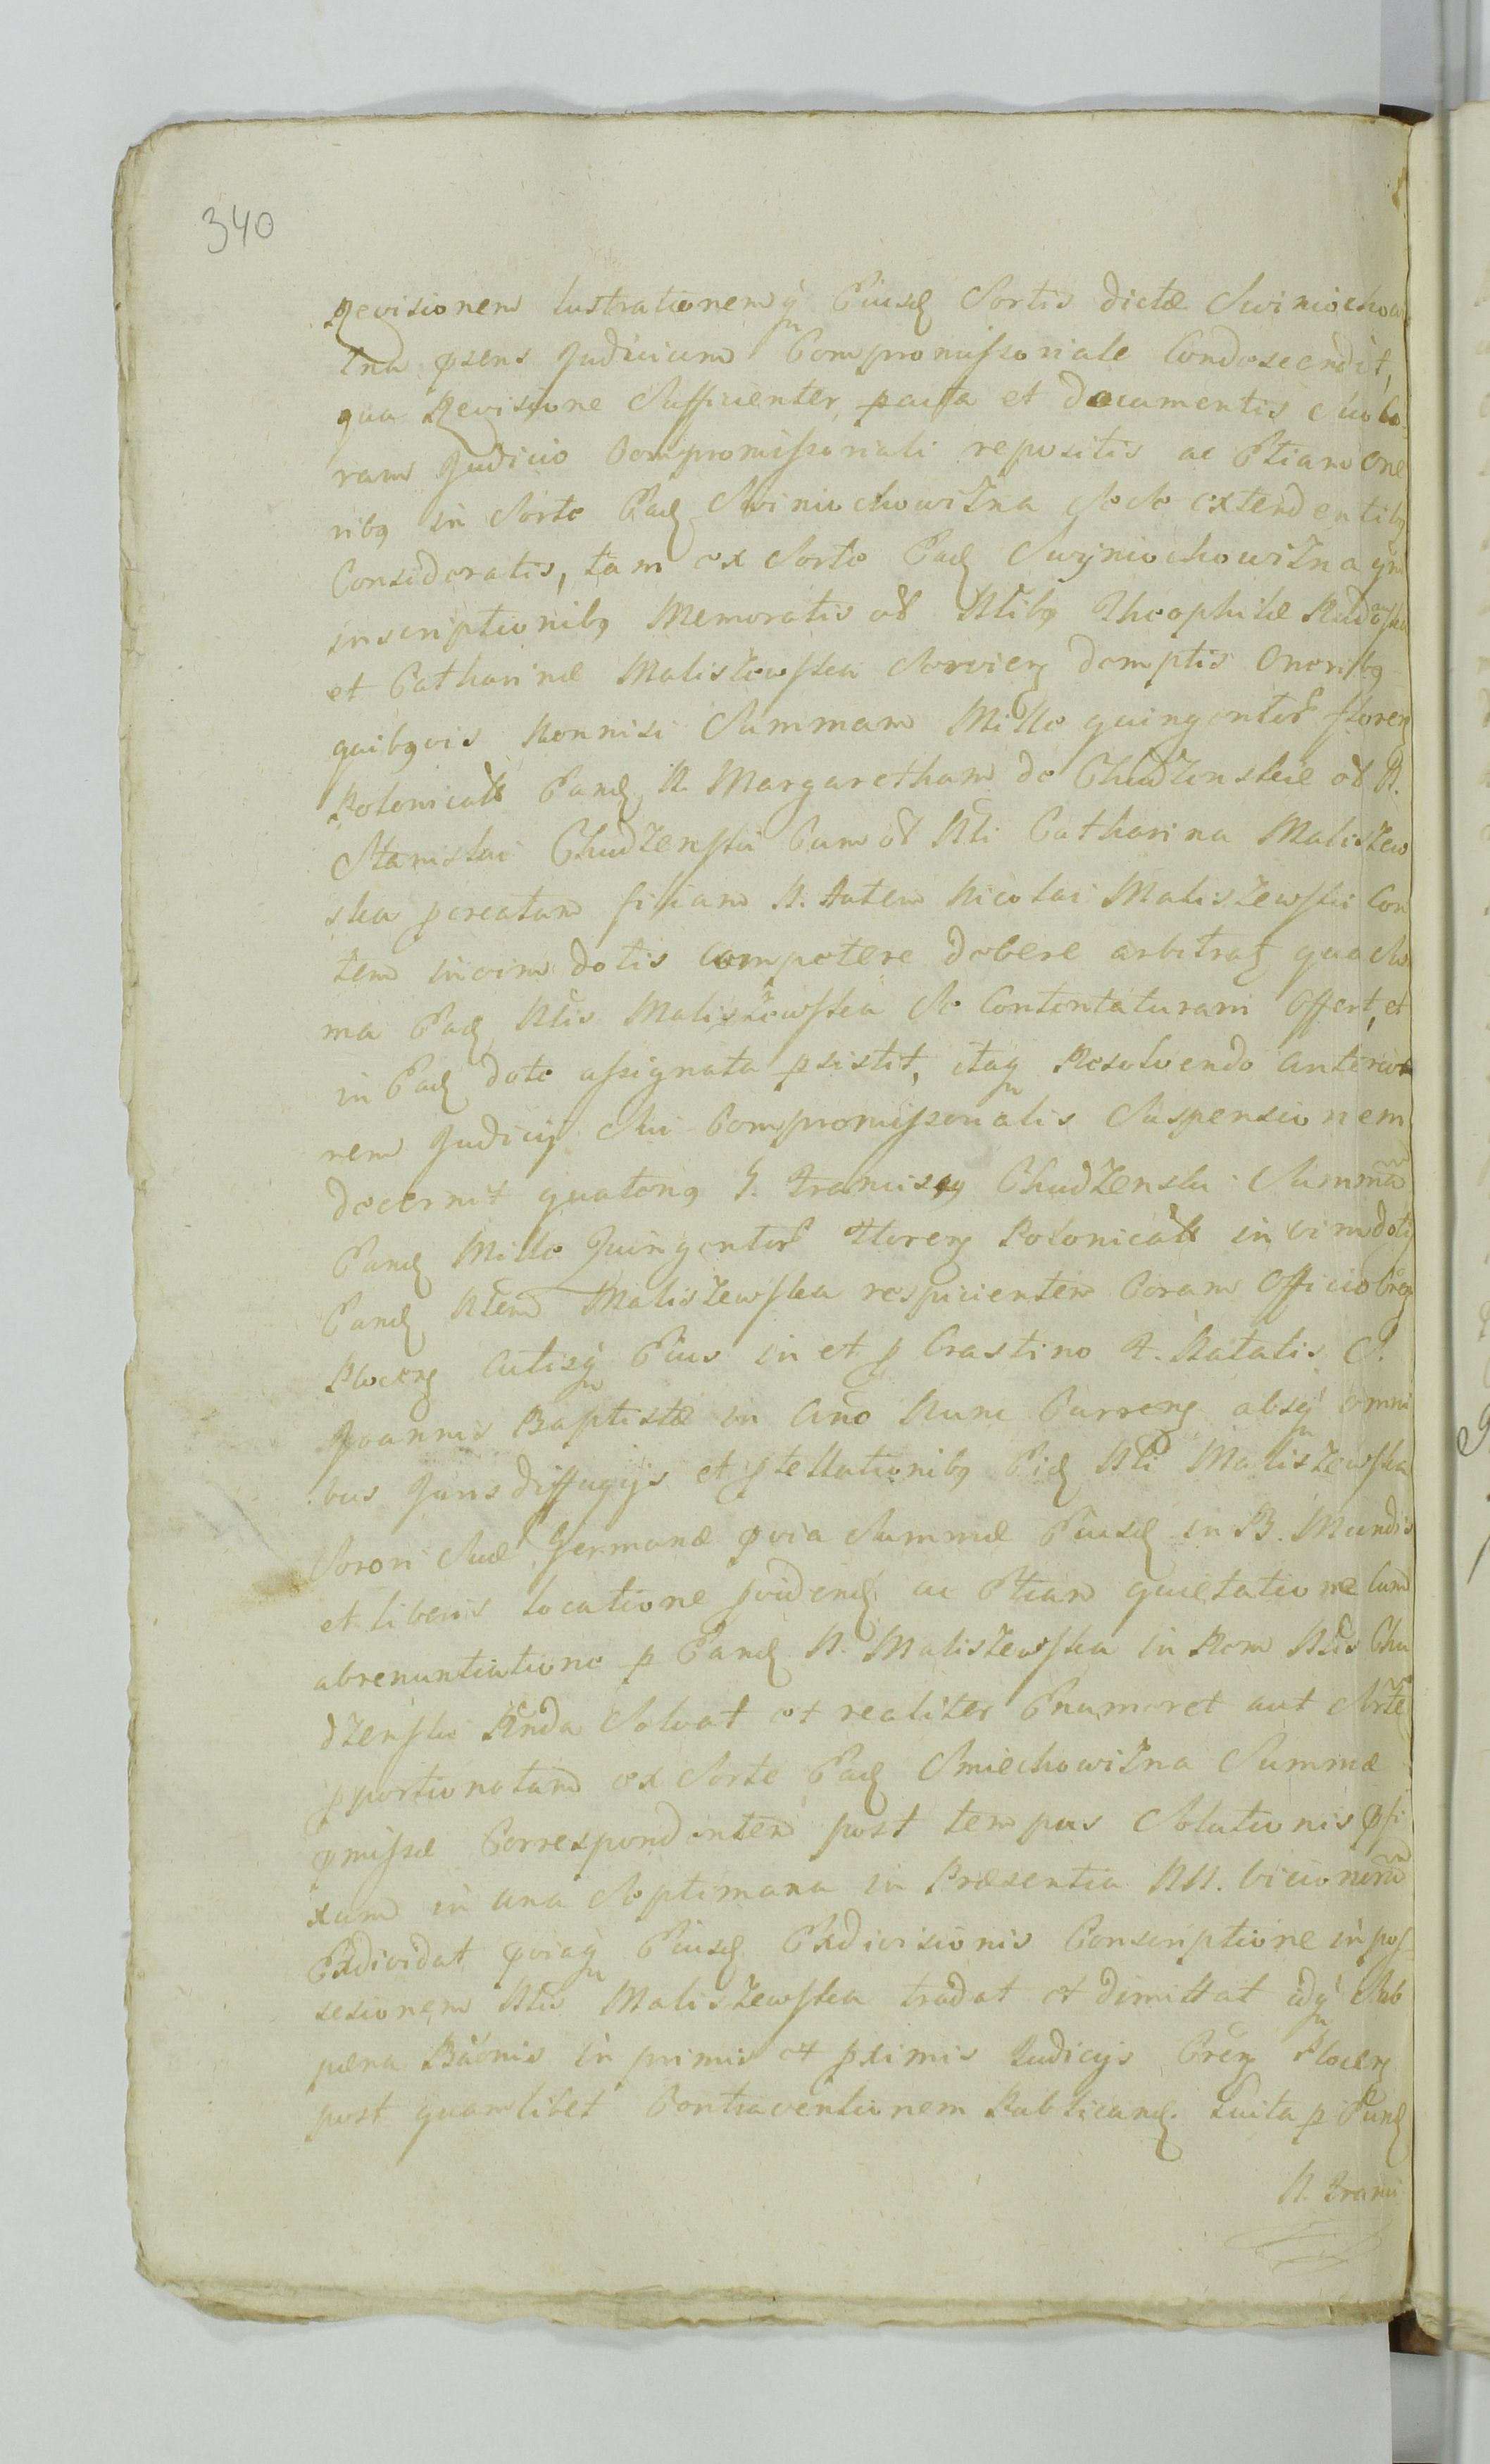 340
Revisionem lustrationemq̃ Eiusd Sortis dictæ Swiniochow
zna psens Judicium Compromissoriale Condescendit,
qua Revisione Sufficienter pacta et documentis suis Co
ram Judicio Compromissoriali repositis ac Etiam One
ribq in Sorte Ead Swiniochowizna sese extendentibq
Consideratis, tam ex Sorte Ead Swyniochowizna
inscriptionibq Memoratis Nlibq Theophilæ
et Catharinæ Maliszewska Servien demptis Oneribq
quibqvis Nonnisi Summam Mille quingentor floren
Polonicall Eand N. Margaretham de Chudzenskie N.
Stanislai Chudzenski Cum Nli Catharina Maliszew
ska pcreatam filiam N. Autem Nicolai Maliszewski Con
tem in vim dotis Competere debere arbitrat, qua Su
ma Ead Nlis Maliszewska se Contentaturam Offert, et
in Ead dote assignata psistit, itaq Resolvendo anterio
rem Judicij Sui Compromissorialis Suspensionem
decernit quatenq G. Franciscq Chudzenski Summã
Eand Mille Quingentor Floren Polonicall in vim dotis
Eand Nlem Maliszewska respicientem Coram Officio
Plocen Actisq̃ Eius in et p Crastino F. Natalis S.
Joannis Baptistæ in Año Nunc Curren absq̃ omni
bus Juris diffugijs et ptellationibq Eid Nli Maliszewska
Sorori Suæ Germanæ pvia Summæ Eiusd in B. Mundis
et liberis locatione pvidend ac Etiam quietatione Cum
abrenuntiatione p Eand N. Maliszewska in Rem Nlis Chu
dzenski solvat et realiter Enumeret aut Sortẽ
pportionatam ex Sorte Ead Smiechowizna Summæ
pmissæ Correspondentem post tempus Solutionis pfi
xum in una Septimana in Præsentia NN.
Exdividat pviaq̃ Eiusd Exdivisionis Conscriptione in pos
sesionem Nlis Maliszewska tradat et dimittat idq̃ Sub
pæna Bãonis in primis et pximis Judicijs Plocen
post quamlibet Contraventionem Publicand. Luita p Eund
N. Franci